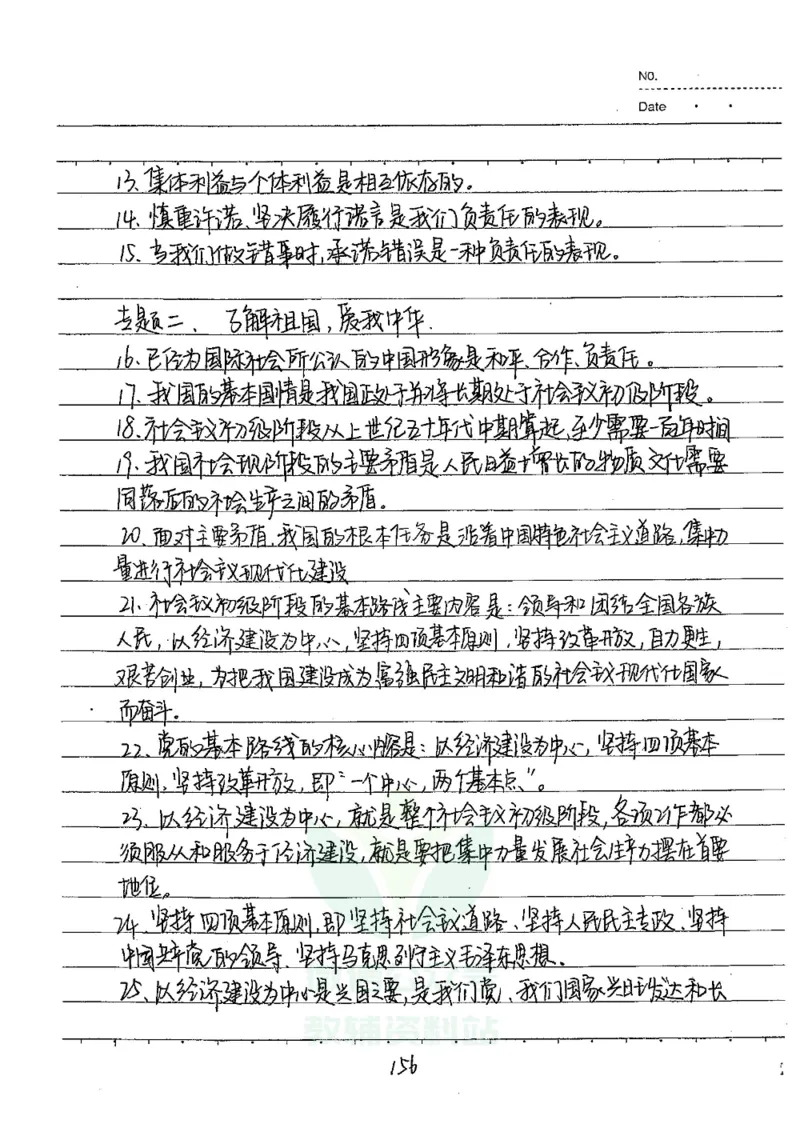 No.
Date
13、集体利益与个体利益是相互依存的。
14、慎重许诺、坚决履行诺言是我们负责任的表现。
15、当我们做错事时,承诺错误是一种负责任的表现。
专题二、了解祖国,爱我中华.
16、已经为国际社会所公认的中国形象是和平、合作、负责任。
17、我国的基本国情是我国正处于并将长期处于社会主义初级阶段。
18、社会主义初级阶段从上世纪五十年代中期算起,至少需要一百年时间
19、我国社会现阶段的主要矛盾是人民日益增长的物质文化需要
同落后的社会生产之间的矛盾。
20、面对主要矛盾,我国的根本任务是沿着中国特色社会主义道路,集中力
量进行社会主义现代化建设
21、社会主义初级阶段的基本路线主要内容是:领导和团结全国各族
人民,以经济建设为中心,坚持四项基本原则,坚持改革开放,自力更生,
艰苦创业,为把我国建设成为富强民主文明和谐的社会主义现代化国家
而奋斗。
22、党的基本路线的核心内容是:以经济建设为中心,坚持四项基本
原则,坚持改革开放,即“一个中心,两个基本点”。
23、以经济建设为中心,就是整个社会主义初级阶段,各项工作都必
须服从和服务于经济建设,就是要把集中力量发展社会生产力摆在首要
地位。
24、坚持四项基本原则,即坚持社会主义道路、坚持人民民主专政、坚持
中国共产党的领导、坚持马克思列宁主义毛泽东思想。
25、以经济建设为中心是兴国之要,是我们党、我们国家兴旺发达和长
教辅资料站
156